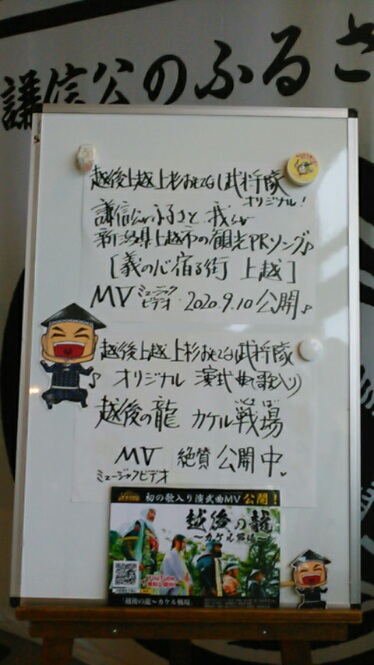 謙信公のふるさ
越後上越上杉おもてなし武将隊
オリジナル!
謙信公がふるさと 我らが
新潟県上越市の観光PRソング♪
[義の心宿る街 上越]
MV ミュージックビデオ 2020.9.10 公開♪
越後上越上杉おもてなし武将隊
♪ オリジナル 演武曲(歌入り)
越後の龍 カケル戦場
MV 絶賛 公開中。
ミュージックビデオ
初の歌入り演武曲MV公開!
越後の龍
~カケル戦場~
越後の龍~カケル戦場